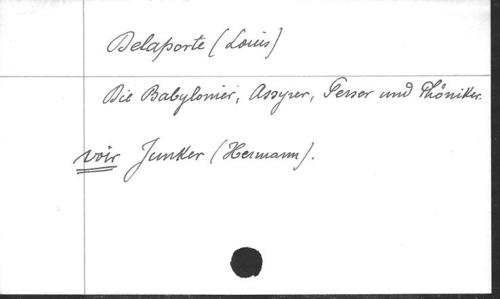 Delaporte (Louis)
Die Babylonier, Assyrer, Perser und Phöniker.
voir Junker (Hermann).